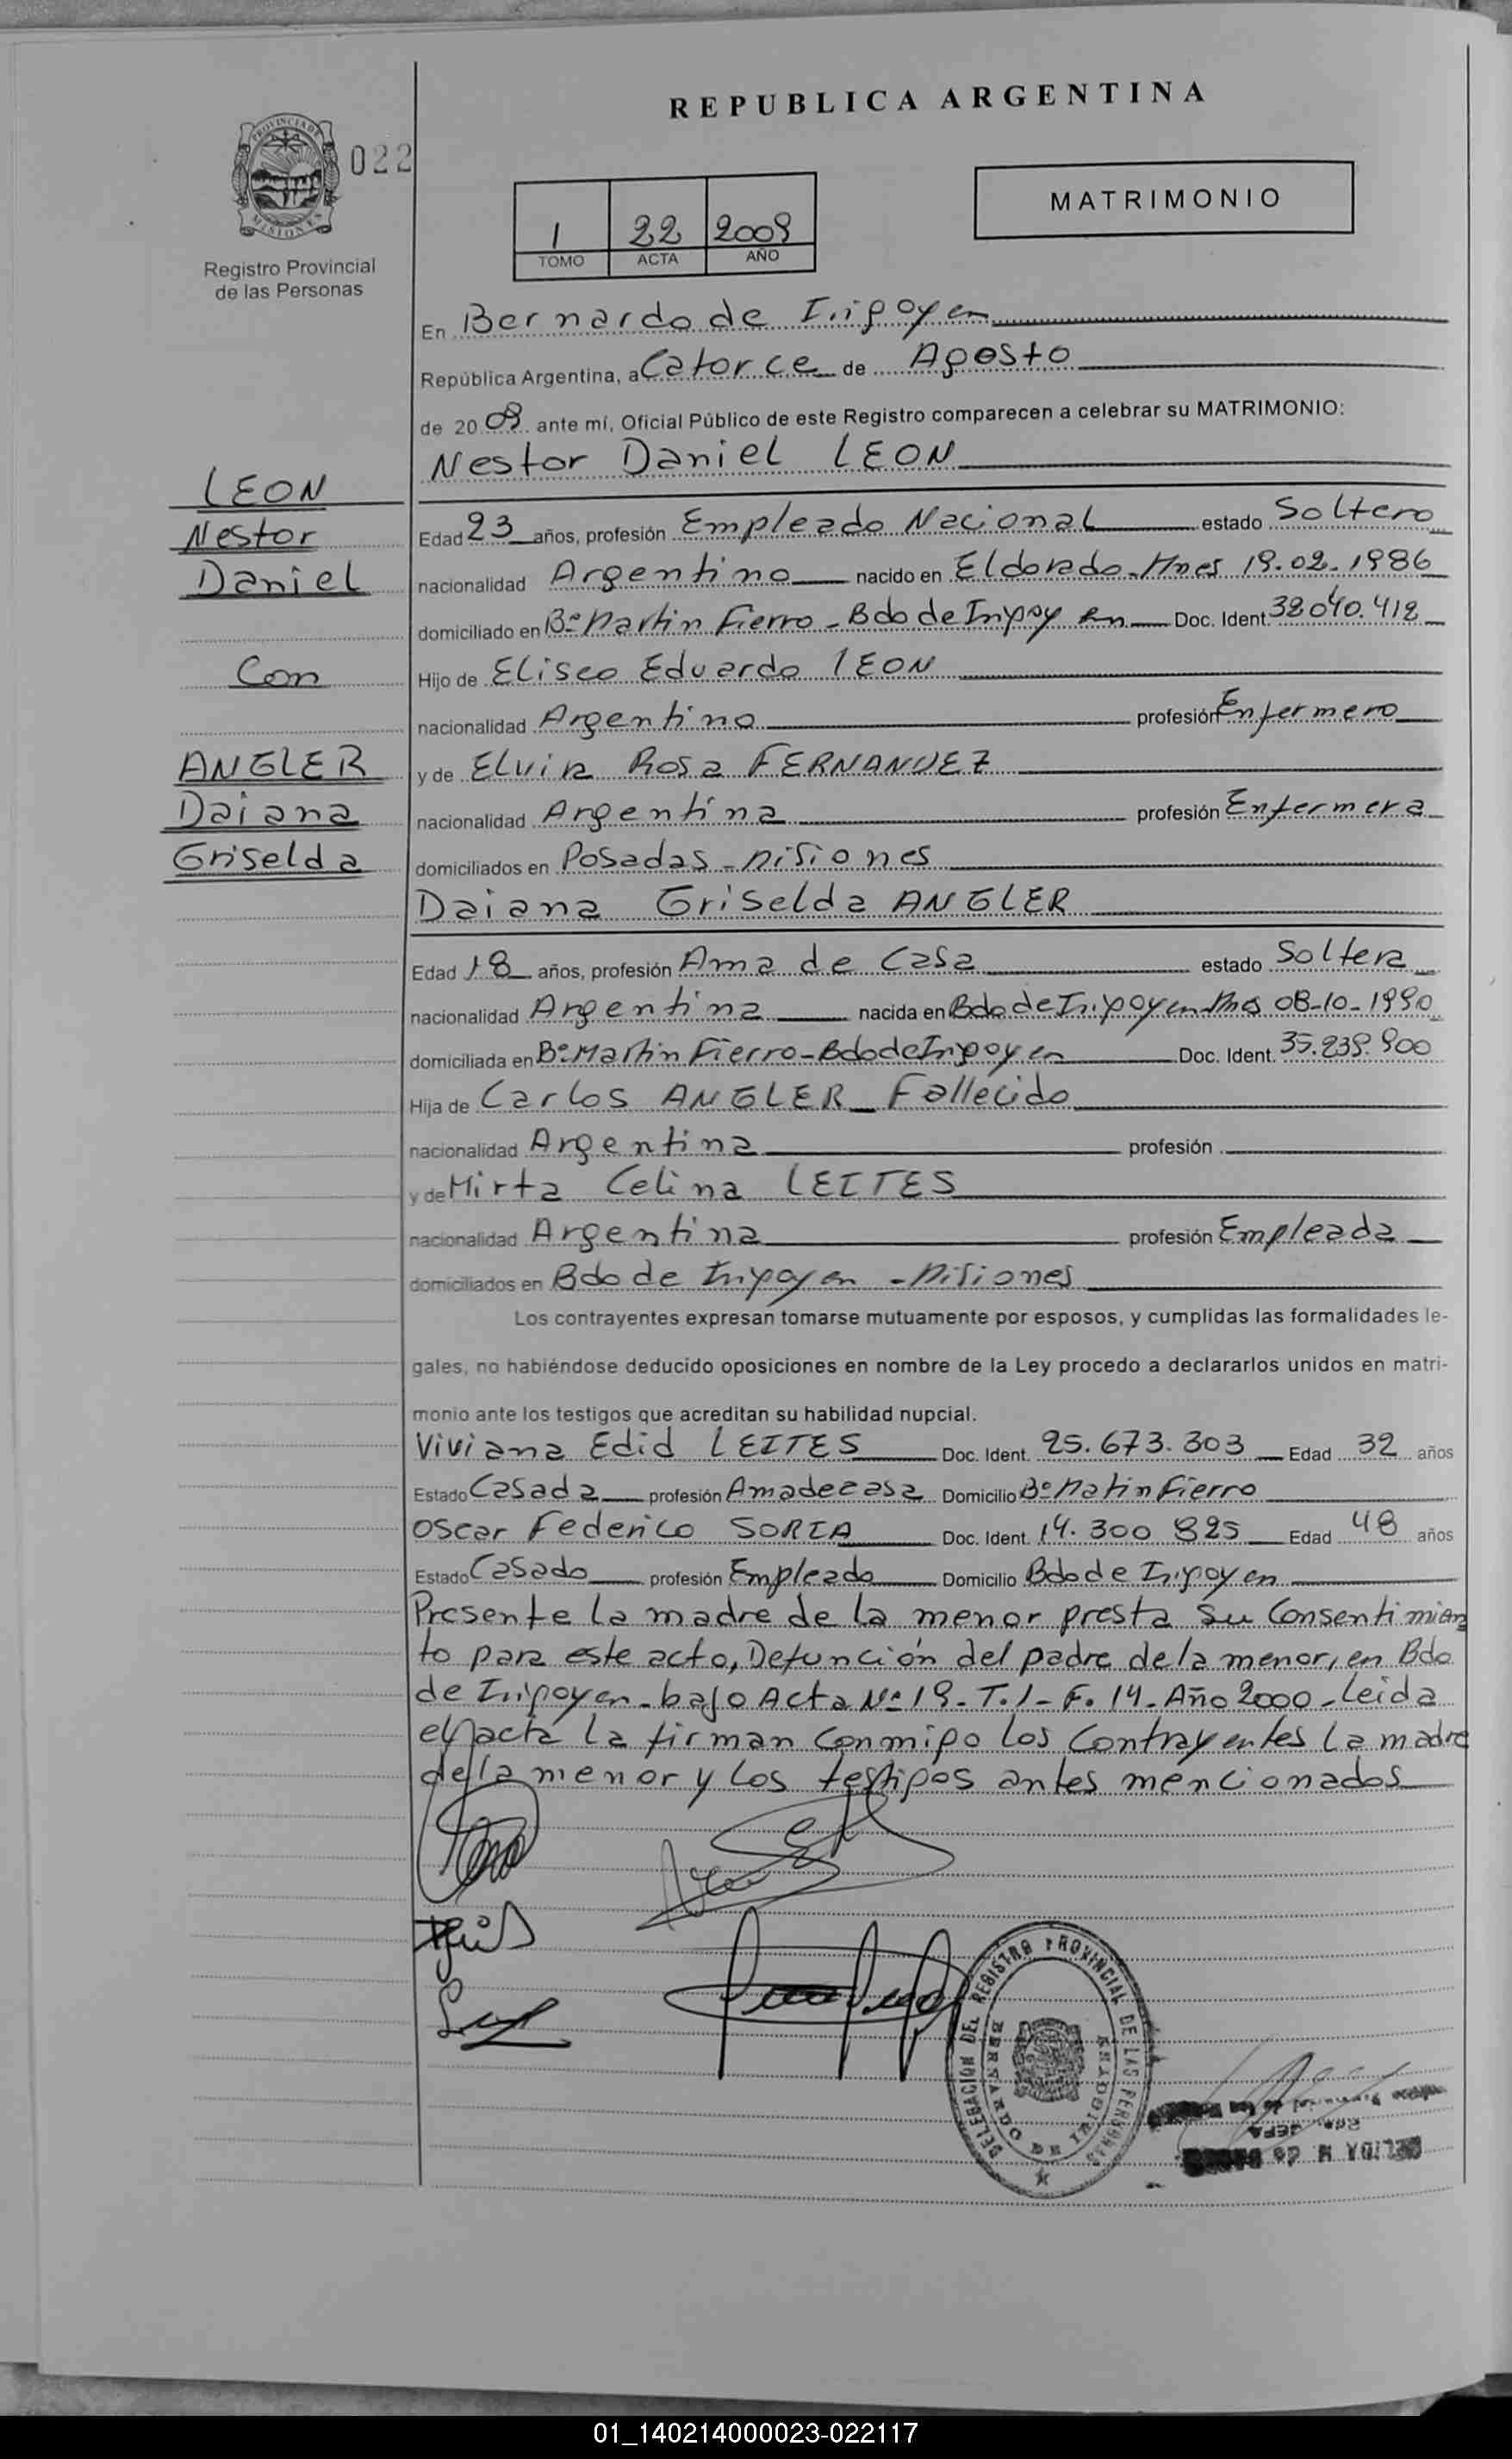 REPUBLICA ARGENTINA
PROVINCIA DE
MISIONES
022
Registro Provincial
de las Personas
1 22 2009
TOMO ACTA AÑO
MATRIMONIO
En Bernardo de Irigoyen
República Argentina, a Catorce de Agosto
de 20 09 ante mí, Oficial Público de este Registro comparecen a celebrar su MATRIMONIO:
Nestor Daniel LEON
LEON
Nestor
Daniel
Con
ANGLER
Daiana
Griselda
Edad 23 años, profesión Empleado Nacional estado Soltero
nacionalidad Argentino nacido en Eldorado-Mnes 19.02.1986
domiciliado en Bº Martin Fierro - Bdo de Irigoyen Doc. Ident. 32040.412
Hijo de Eliseo Eduardo LEON
nacionalidad Argentino profesión Enfermero
y de Elvira Rosa FERNANDEZ
nacionalidad Argentina profesión Enfermera
domiciliados en Posadas - Misiones
Daiana Griselda ANGLER
Edad 18 años, profesión Ama de Casa estado Soltera
nacionalidad Argentina nacida en Bdo de Irigoyen-Mnes 08-10-1990
domiciliada en Bº Martin Fierro - Bdo de Irigoyen Doc. Ident. 35.239.900
Hija de Carlos ANGLER _ Fallecido
nacionalidad Argentina profesión
y de Mirta Celina LEITES
nacionalidad Argentina profesión Empleada
domiciliados en Bdo de Irigoyen - Misiones
Los contrayentes expresan tomarse mutuamente por esposos, y cumplidas las formalidades le-
gales, no habiéndose deducido oposiciones en nombre de la Ley procedo a declararlos unidos en matri-
monio ante los testigos que acreditan su habilidad nupcial.
Viviana Edid LEITES Doc. Ident. 25.673.303 Edad 32 años
Estado Casada profesión Ama de casa Domicilio Bº Matin Fierro
Oscar Federico SORIA Doc. Ident. 14.300 825 Edad 48 años
Estado Casado profesión Empleado Domicilio Bdo de Irigoyen
Presente la madre de la menor presta su Consentimien
to para este acto, Defunción del padre de la menor, en Bdo
de Irigoyen - bajo Acta Nº 19 - T. 1 - F. 14 - Año 2000 - leida
el acta la firman conmigo los Contrayentes la madre
de la menor y los testigos antes mencionados
DELEGACION DEL REGISTRO PROVINCIAL DE LAS PERSONAS
BERNARDO DE IRIGOYEN
JEFA
01_140214000023-022117